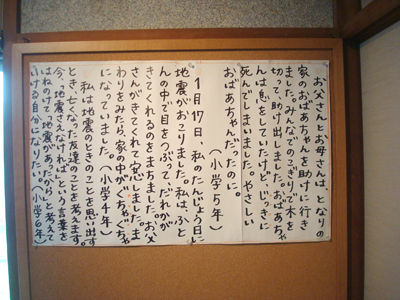 お父さんとお母さんは、となりの
家のおばあちゃんを助けに行き
ました。みんなでのこぎりで木を
切って、助け出しました。おばあちゃ
んは息をしていたけど、じきに
死んでしまいました。やさしい
おばあちゃんだったのに。
（小学5年）
1月17日、私のたんじょう日に
地震がおこりました。私は、ふと
んの中で目をつぶって、だれかが
きてくれるのをまちました。お父
さんがきてくれて安心しました。ま
わりをみたら、家の中がぐちゃぐちゃ
になっていました。（小学4年）
私は地震のときのことを思い出す
とき、亡くなった友達のことを考えます。
今、「地震さえなければ」という言葉を
はねのけて「地震があったから」と考えて
いける自分になりたい。（小学6年）